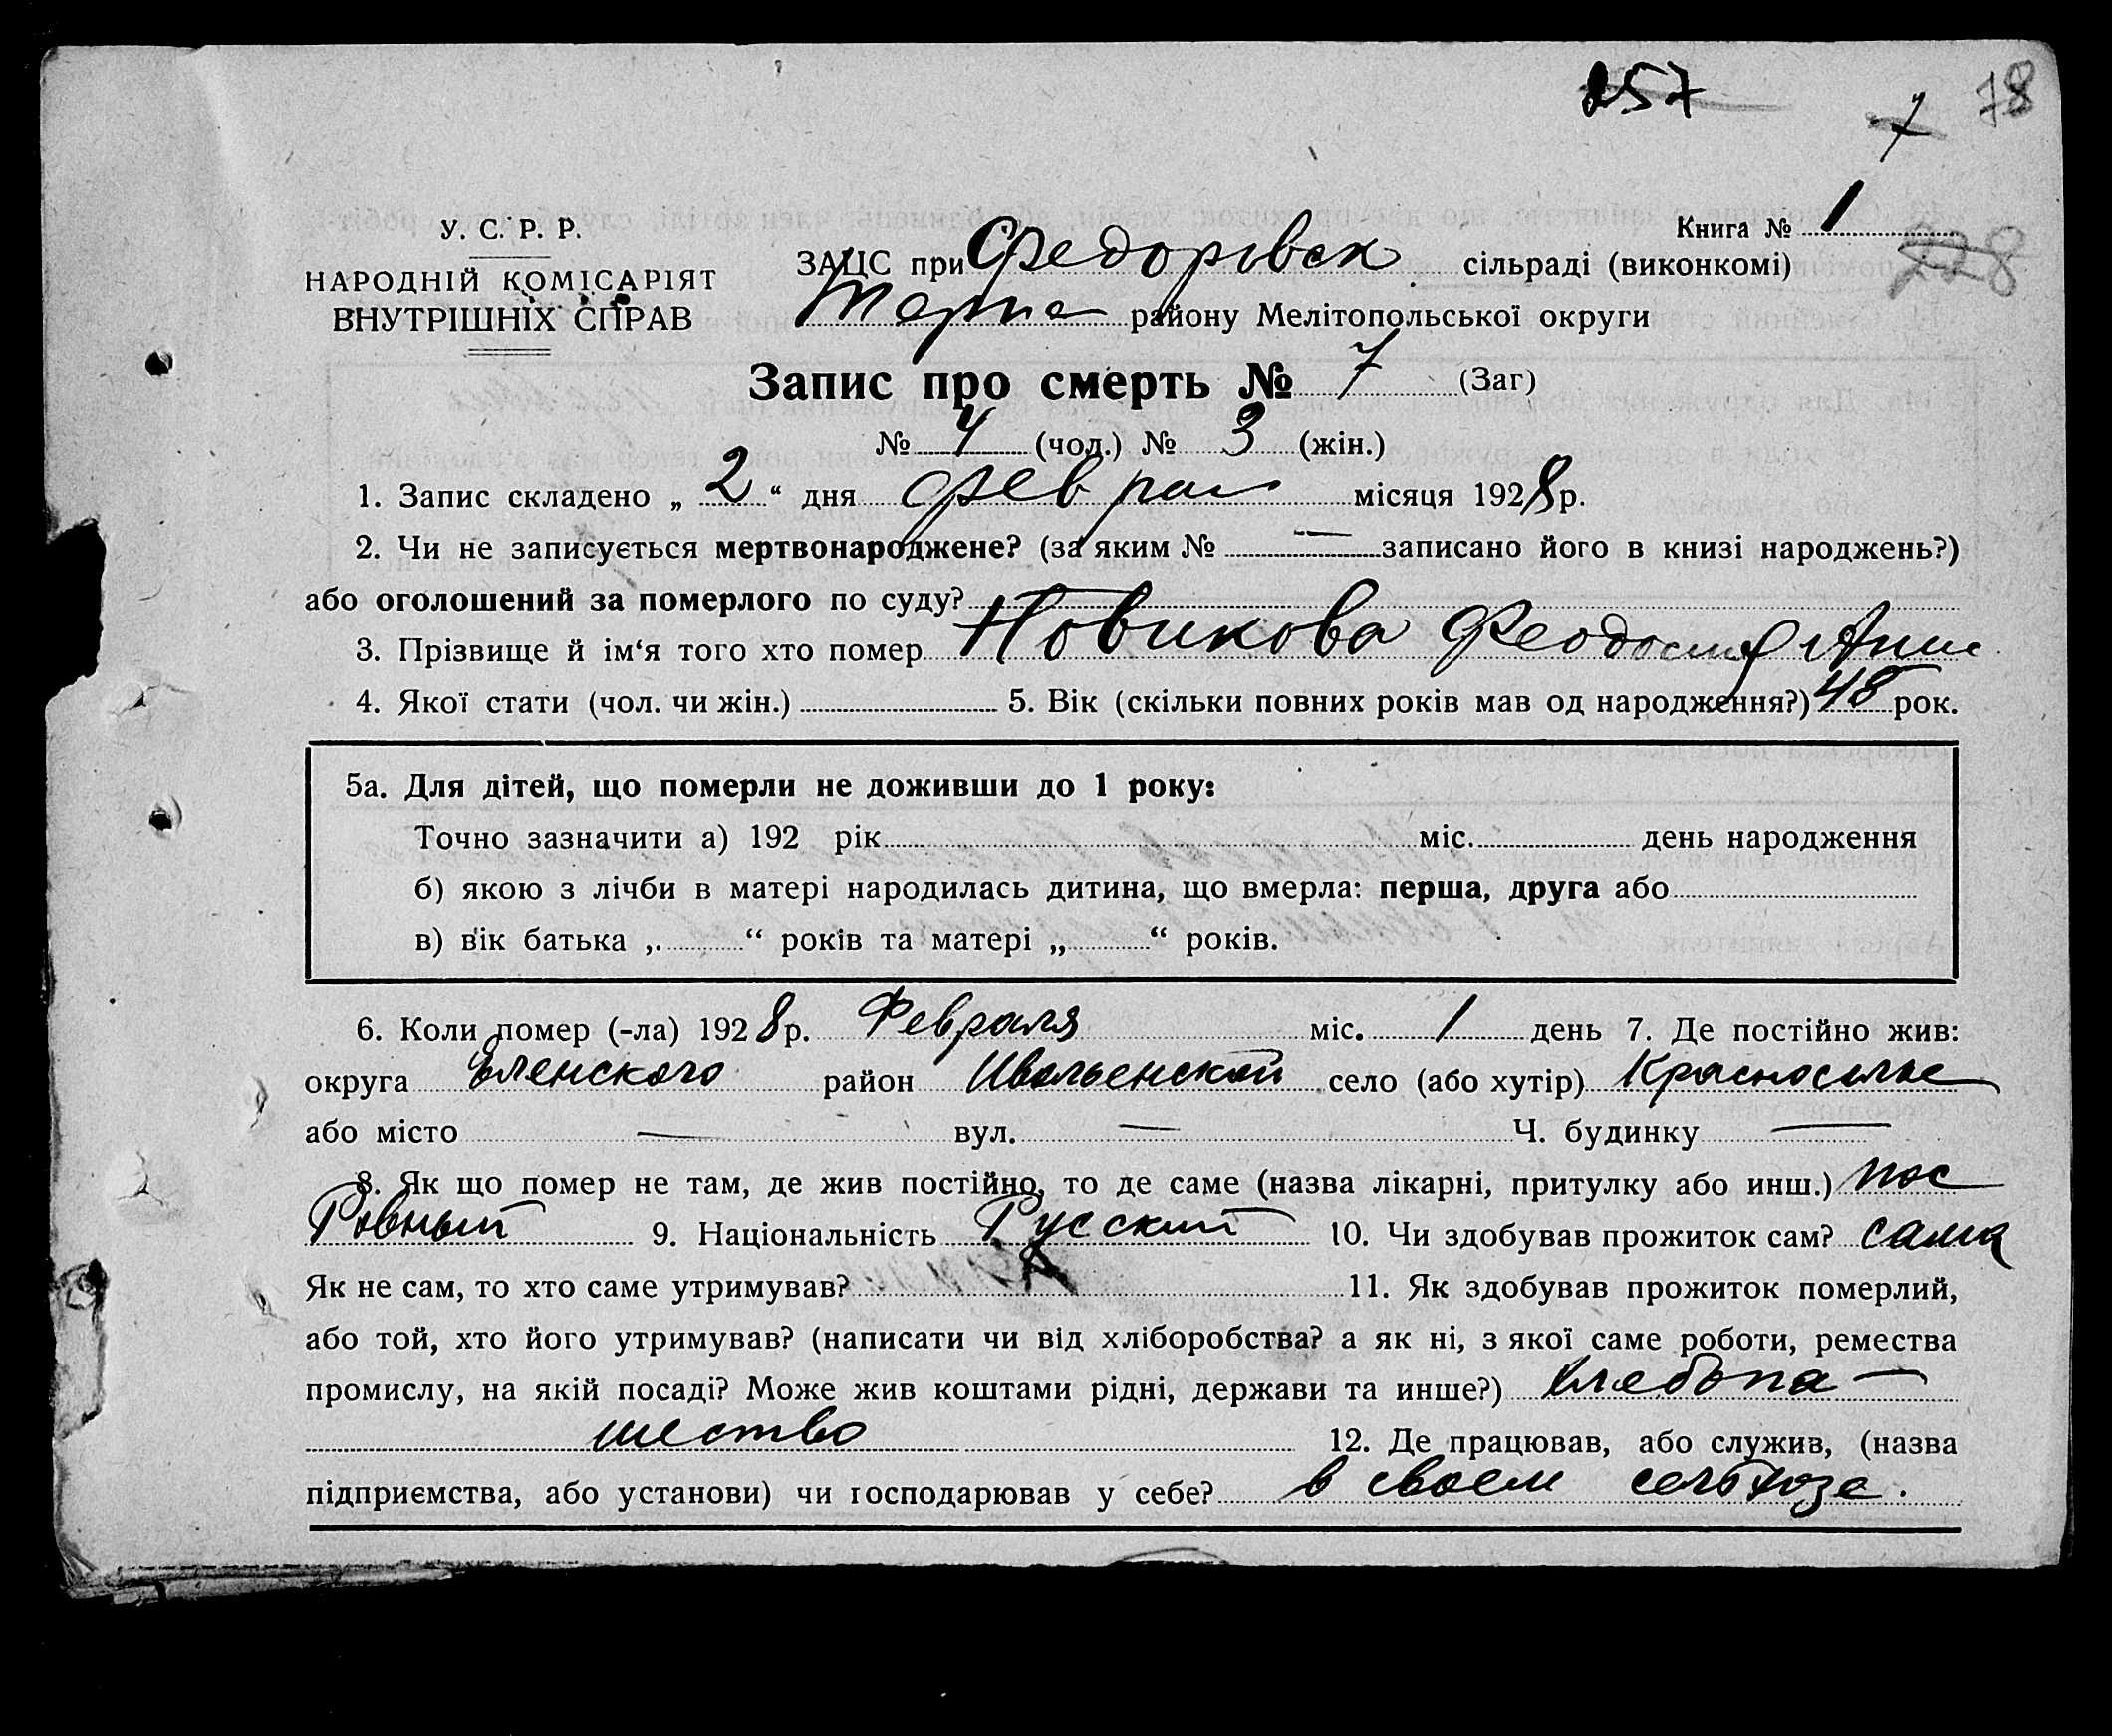 257
7 78
У. С. Р. Р.
НАРОДНІЙ КОМІСАРІЯТ
ВНУТРІШНІХ СПРАВ
Книга № 1
228
ЗАЦС при Федоровск сільраді (виконкомі)
району Мелітопольської округи
Запис про смерть № 7 (Заг)
№ 4 (чол.) № 3 (жін.)
1. Запис складено „ 2 “ дня феврал місяця 1928 р.
2. Чи не записується мертвонароджене? (за яким № — записано його в книзі народжень?)
або оголошений за померлого по суду?
3. Прізвище й ім‘я того хто помер Новикова Феодосия
4. Якої стати (чол. чи жін.) 5. Вік (скільки повних років мав од народження?) 48 рок.
5а. Для дітей, що померли не доживши до 1 року:
Точно зазначити а) 192 рік міс. день народження
б) якою з лічби в матері народилась дитина, що вмерла: перша, друга або
в) вік батька „ “ років та матері „ “ років.
6. Коли помер (-ла) 1928 р. Февраля міс. 1 день 7. Де постійно жив:
округа район село (або хутір) Красноселье
або місто — вул. — Ч. будинку —
8. Як що помер не там, де жив постійно, то де саме (назва лікарні, притулку або инш.) пос
Ровный 9. Національність Русский 10. Чи здобував прожиток сам? сама
Як не сам, то хто саме утримував? 11. Як здобував прожиток померлий,
або той, хто його утримував? (написати чи від хліборобства? а як ні, з якої саме роботи, ремества
промислу, на якій посаді? Може жив коштами рідні, держави та инше?) хлебопа—
шество 12. Де працював, або служив, (назва
підприємства, або установи) чи господарював у себе? в своем сельхозе.